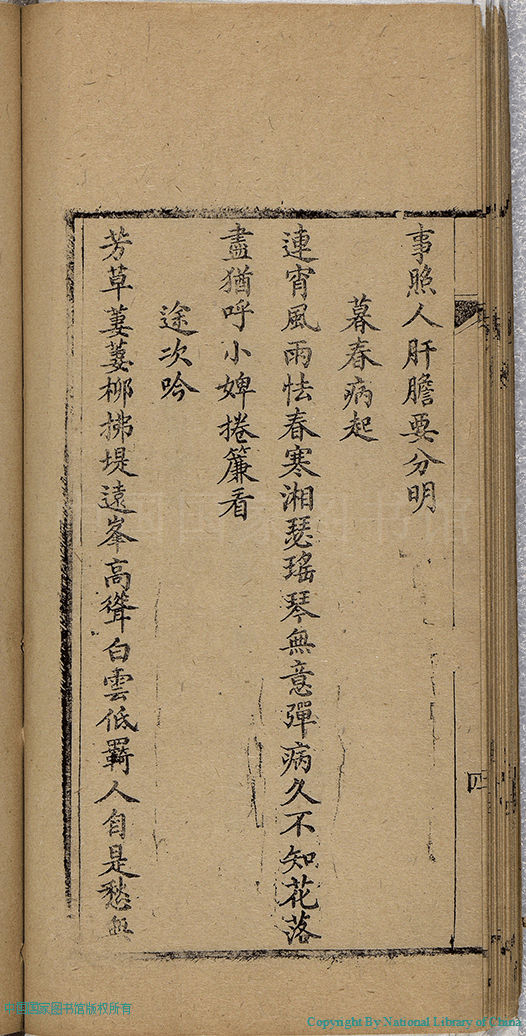 事照人肝膽要分明
暮春病起
連宵風雨怯春寒湘瑟瑤琴無意彈病久不知花落
盡猶呼小婢捲簾看
途次吟
芳草萋萋柳拂堤遠峯高聳白雲低羇人自是愁無
四
中国国家图书馆版权所有
Copyright By National Library of China